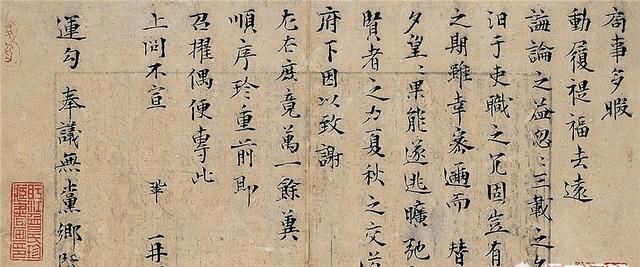 局事多暇
動履禔福去遠
誨論之益忽〻三載之
汩于吏職之冗固豈有
之期雖幸密邇而替
夕望〻果能遂逃曠弛
賢者之力夏秋之交道
府下因以致謝
左右庶竟萬一餘冀
順序珍重前即
召擢偶便專此
上問不宣 鞏 再
運勾 奉議無黨鄉